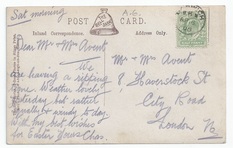 Sat morning
POST CARD.
A-6.
Inland Correspondence.
Address Only.
Dear Mr & Mrs Avent
We
are having a ripping
time. Weather lovely
yesterday but rather
& windy today
with my best wishes
for Easter Yours Chas.
Mr & Mrs Avent
8 Haverstock St
City Road
London N